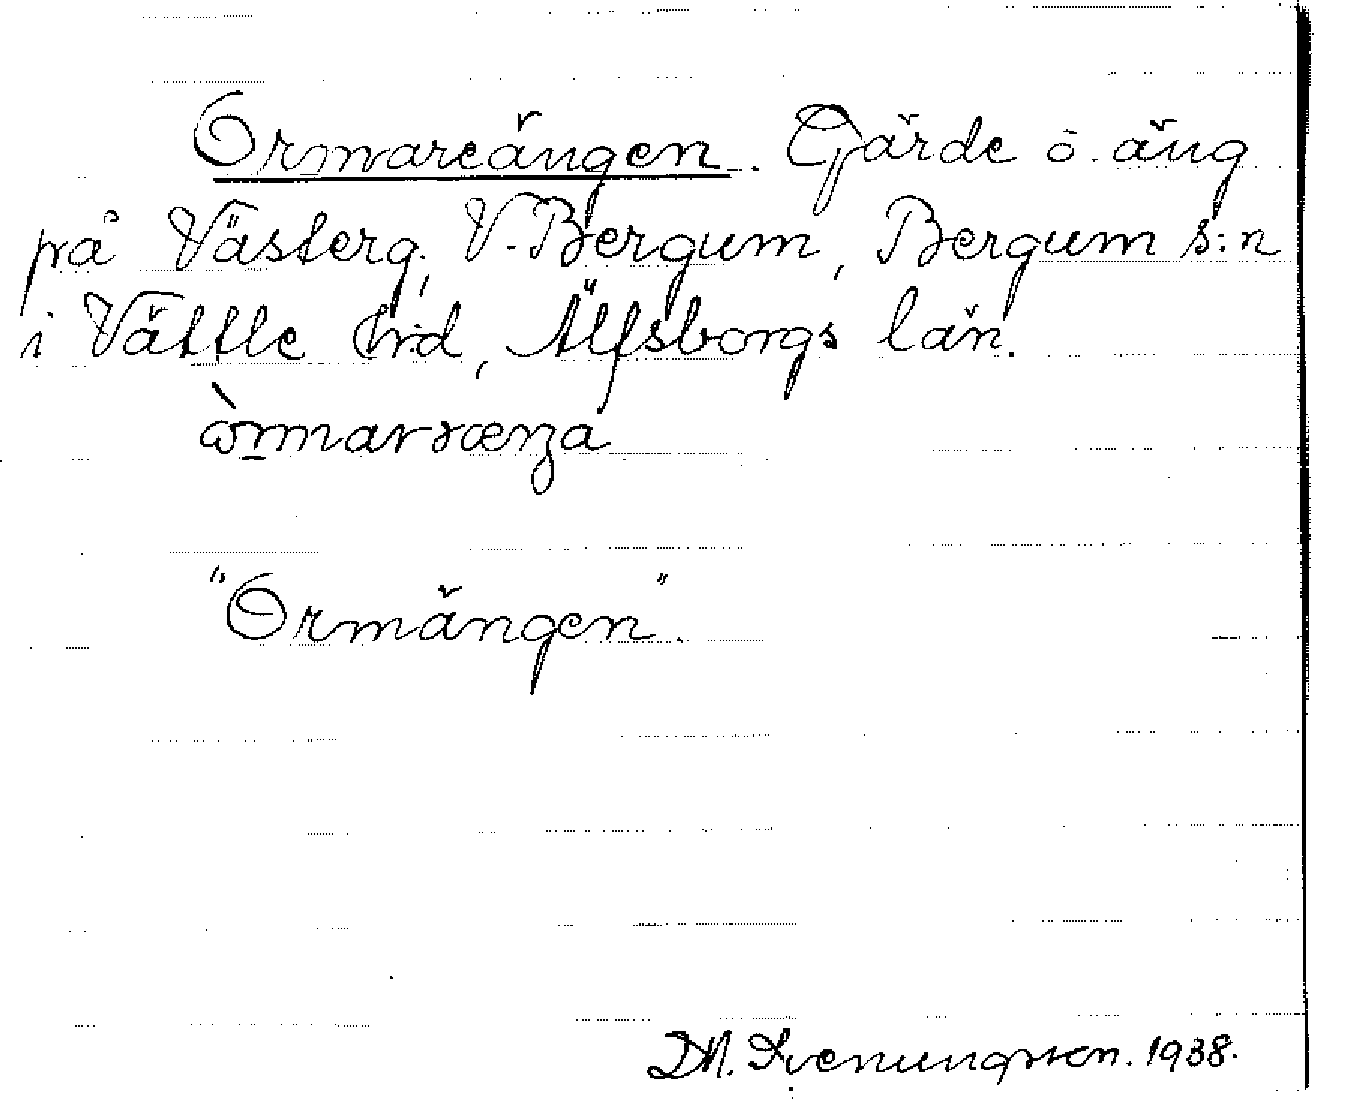 Ormareängen. Gärde o. äng
på Västerg., V. Bergum, Bergum s:n
i Vättle hrd, Älfsborgs län.
"Ormängen".
Svenungsson. 1938.